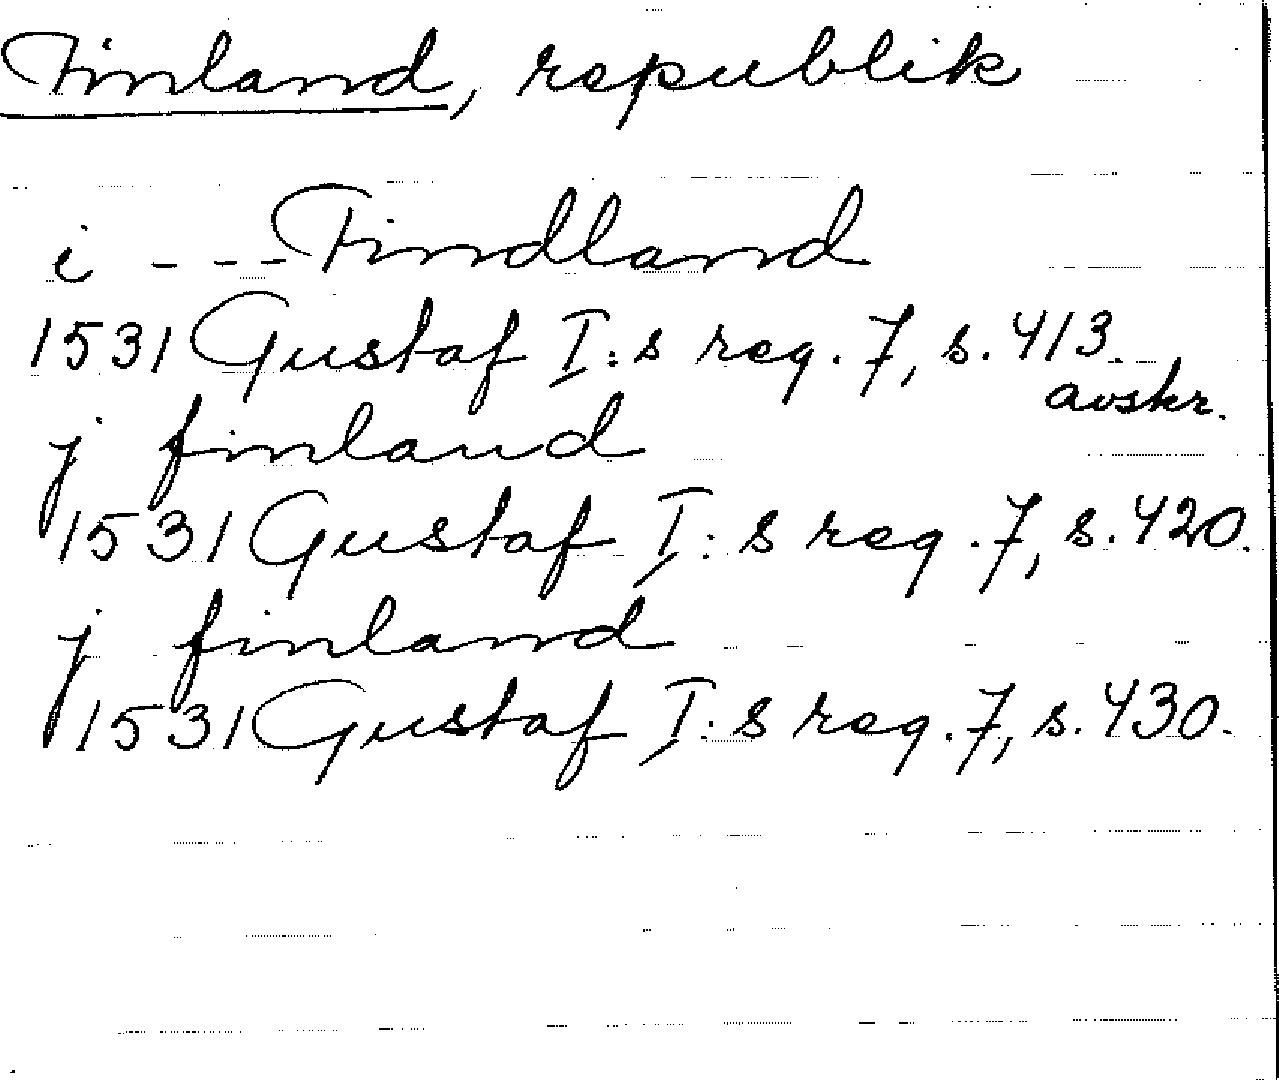 Finland, republik
i - - - Findland
1531 Gustaf I:s reg. 7, s. 413.
avskr.
j finland
1531 Gustaf I:s reg. 7, s. 420.
j finland
1531 Gustaf I:s reg. 7, s. 430.